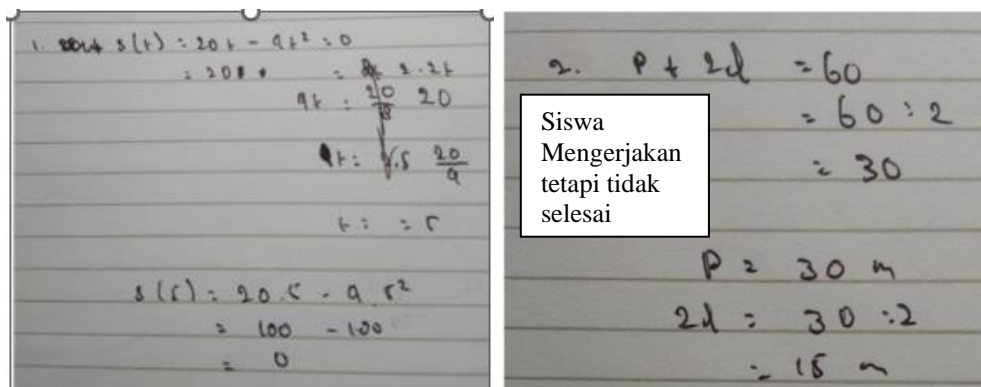 1. s(t) = 20t - 4t² = 0
= 20 = 2.2t
4t = 20
t = 20/4
t = = 5
s(5) = 20.5 - 4 5²
= 100 - 100
= 0
2. P + 2l = 60
= 60 : 2
= 30
Siswa
Mengerjakan
tetapi tidak
selesai
P = 30 m
2l = 30 : 2
= 15 m